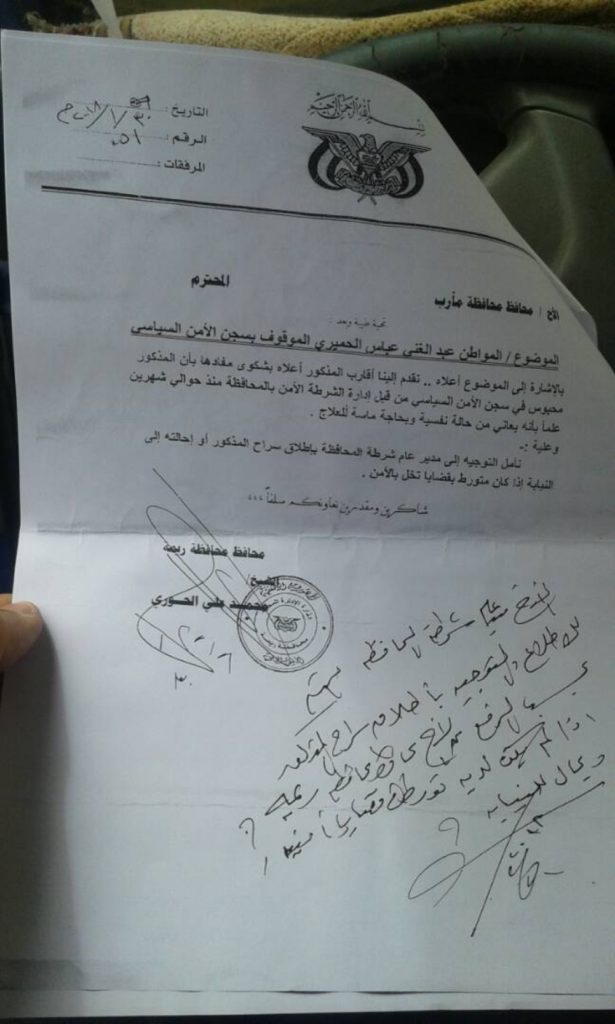 بسم الله الرحمن الرحيم
التاريخ: ٣٠/١/٢٠١٨م
الرقم: ٥١
المرفقات:
الأخ / محافظ محافظة مأرب المحترم
تحية طيبة وبعد :
الموضوع / المواطن عبد الغني عباس الحميري الموقوف بسجن الأمن السياسي
بالإشارة إلى الموضوع أعلاه .. تقدم إلينا أقارب المذكور أعلاه بشكوى مفادها بأن المذكور
محبوس في سجن الأمن السياسي من قبل إدارة الشرطة الأمن بالمحافظة منذ حوالي شهرين
علماً بأنه يعاني من حالة نفسية وبحاجة ماسة للعلاج .
وعلية :-
نأمل التوجيه إلى مدير عام شرطة المحافظة بإطلاق سراح المذكور أو إحالته إلى
النيابة إذا كان متورط بقضايا تخل بالأمن .
شاكرين ومقدرين تعاونكم سلفاً ،،،
محافظ محافظة ريمة
الشيخ/
محمد علي الحوري
الأخ مدير عام شرطة المحافظة
للاطلاع والتوجيه بأطلاق سراح المذكور
حسب الرفع من الأخ محافظ محافظة ريمه
اذا لم يكن لديه تورط في قضايا أمنيه
ويحال للنيابه